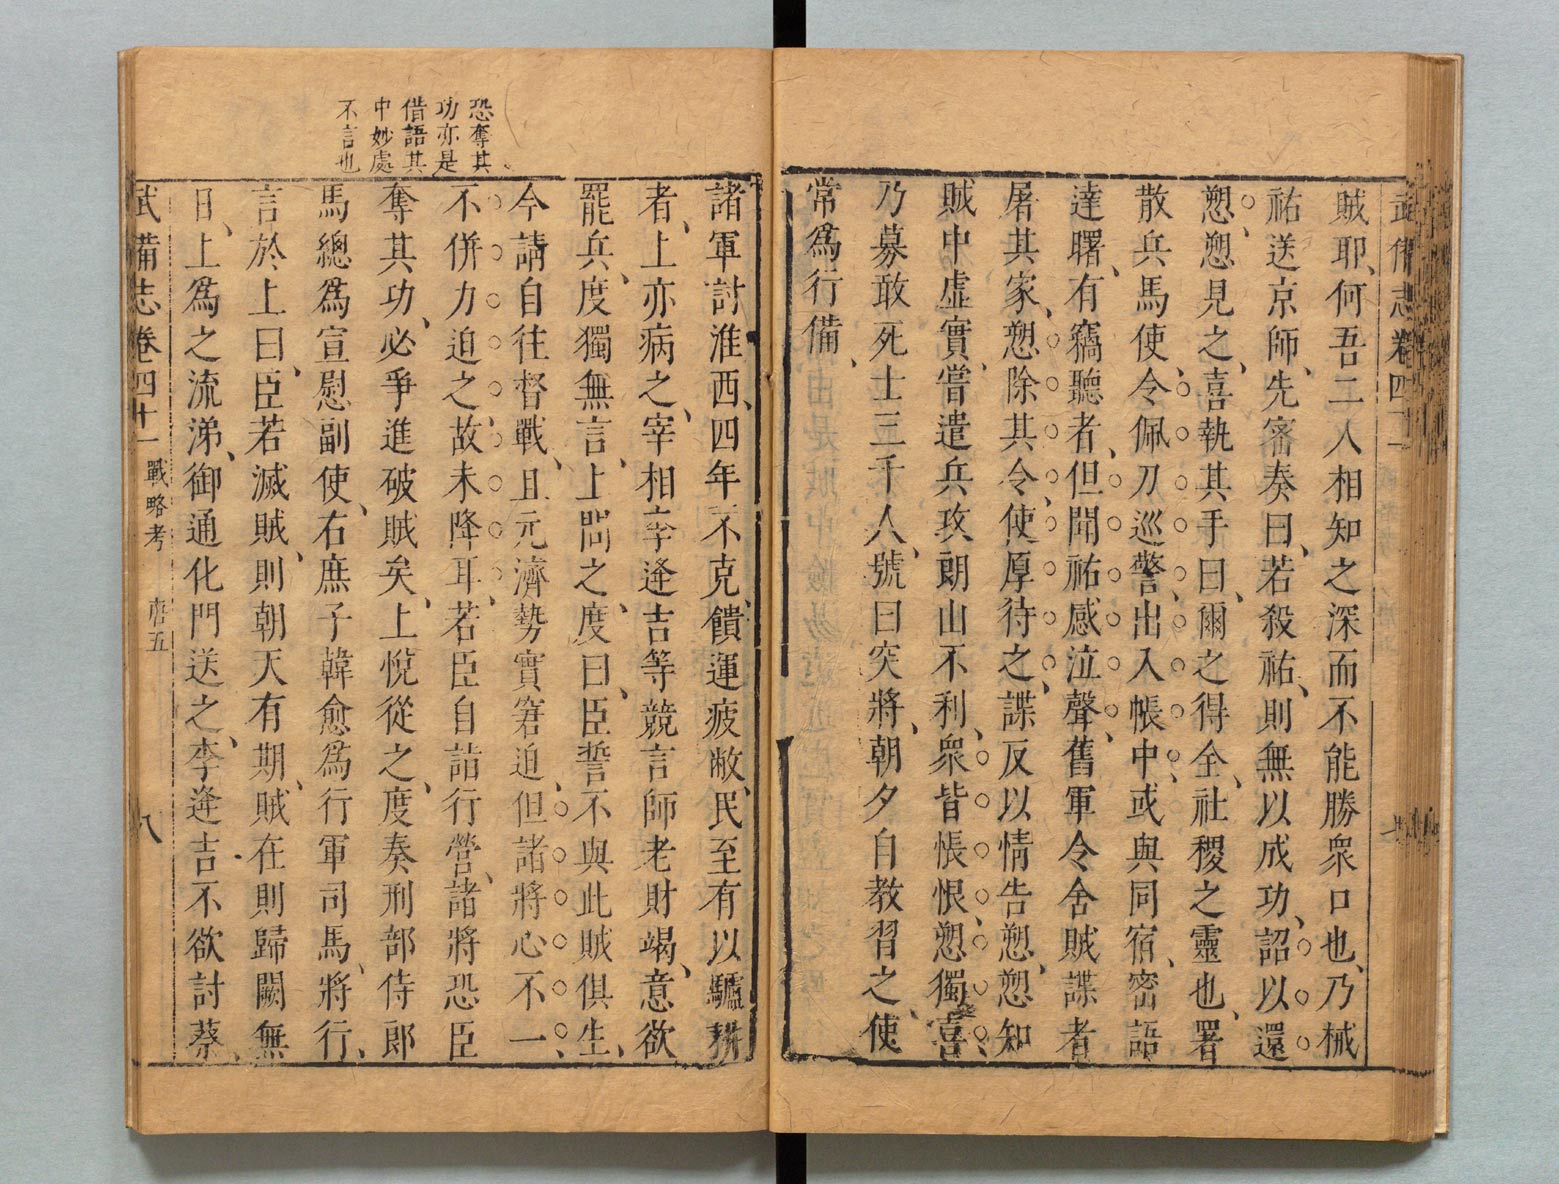 武備志卷四十一
賊耶、何吾二人相知之深而不能勝衆口也、乃械
祐送京師、先密奏曰、若殺祐、則無以成功、詔以還
愬、愬見之、喜執其手曰、爾之得全、社稷之靈也、署
散兵馬使、令佩刀巡警、出入帳中、或與同宿、密語
達曙、有竊聽者、但聞祐感泣聲、舊軍令舍賊諜者
屠其家、愬除其令、使厚待之、諜反以情告愬、愬知
賊中虛實、甞遣兵攻朗山不利、衆皆悵恨、愬獨喜、
乃募敢死士三千人、號曰突將、朝夕自教習之、使
常爲行備、
恐奪其
功亦是
借語其
中妙處
不言也
諸軍討淮西、四年不克、饋運疲敝、民至有以驢耕
者、上亦病之、宰相李逢吉等競言師老財竭、意欲
罷兵、度獨無言、上問之、度曰、臣誓不與此賊俱生、
今請自往督戰、且元濟勢實窘迫、但諸將心不一、
不併力迫之、故未降耳、若臣自詣行營、諸將恐臣
奪其功、必爭進破賊矣、上悅從之、度奏刑部侍郎
馬總爲宣慰副使、右庶子韓愈爲行軍司馬、將行、
言於上曰、臣若滅賊、則朝天有期、賊在則歸闕無
日、上爲之流涕、御通化門送之、李逢吉不欲討蔡、
武備志卷四十一 戰略考 唐五 八